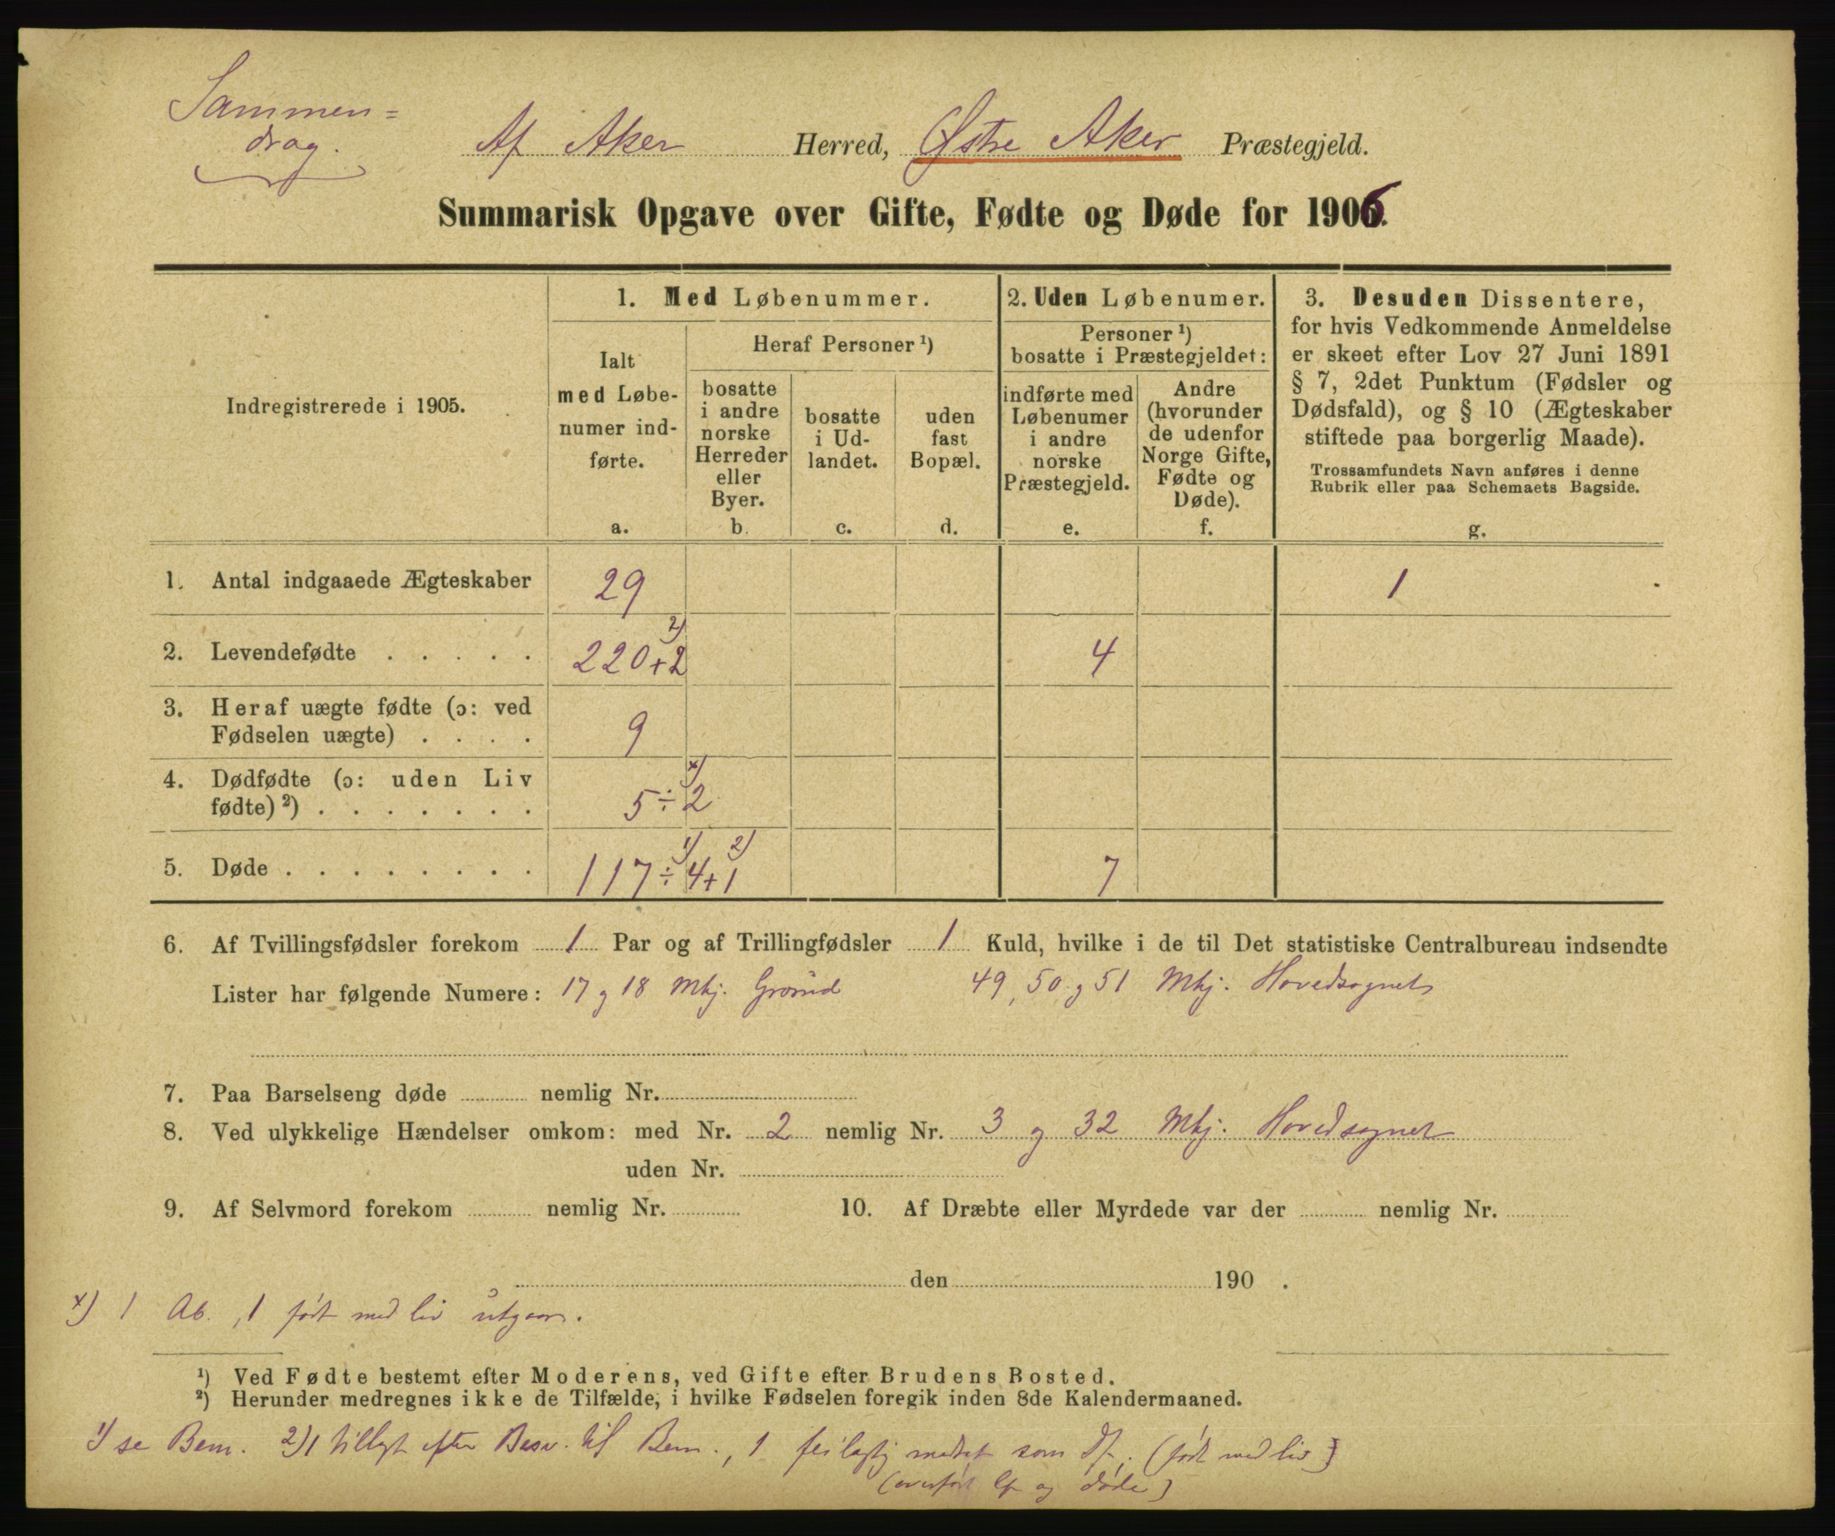 Sammen=
drag.
Af Aker Herred, Østre Aker Præstegjeld.
Summarisk Opgave over Gifte, Fødte og Døde for 1906.
Indregistrerede i 1905.
1. Med Løbenummer.
Ialt
med Løbe-
numer ind-
førte.
a.
Heraf Personer ¹)
bosatte
i andre
norske
Herreder
eller
Byer.
b.
bosatte
i Ud-
landet.
c.
uden
fast
Bopæl.
d.
2. Uden Løbenumer.
Personer ¹)
bosatte i Præstegjeldet:
indførte med
Løbenumer
i andre
norske
Præstegjeld.
e.
Andre
(hvorunder
de udenfor
Norge Gifte,
Fødte og
Døde).
f.
3. Desuden Dissentere,
for hvis Vedkommende Anmeldelse
er skeet efter Lov 27 Juni 1891
§ 7, 2det Punktum (Fødsler og
Dødsfald), og § 10 (Ægteskaber
stiftede paa borgerlig Maade).
Trossamfundets Navn anføres i denne
Rubrik eller paa Schemaets Bagside.
g.
1. Antal indgaaede Ægteskaber 29 1
2. Levendefødte . . . . . 220+2 2) 4
3. Heraf uægte fødte (ɔ: ved
Fødselen uægte) . . . . 9
4. Dødfødte (ɔ: uden Liv
fødte) ²) . . . . . . . 5÷2 x)
5. Døde . . . . . . . . 117÷4 1) +1 2) 7
6. Af Tvillingsfødsler forekom 1 Par og af Trillingfødsler 1 Kuld, hvilke i de til Det statistiske Centralbureau indsendte
Lister har følgende Numere: 17 og 18 Mkj. Grorud 49, 50 og 51 Mkj. Hovedsognet
7. Paa Barselseng døde nemlig Nr.
8. Ved ulykkelige Hændelser omkom: med Nr. 2 nemlig Nr. 3 og 32 Mkj. Hovedsognet
uden Nr.
9. Af Selvmord forekom nemlig Nr. 10. Af Dræbte eller Myrdede var der nemlig Nr.
den 190 .
x) 1 Ab., 1 født med liv utgaar.
¹) Ved Fødte bestemt efter Moderens, ved Gifte efter Brudens Bosted.
²) Herunder medregnes ikke de Tilfælde, i hvilke Fødselen foregik inden 8de Kalendermaaned.
1) se Bem. 2) 1 tillagt efter Besv. til Bem., 1 feilagtig medtat som df. (født med liv)
(overført lf og døde)